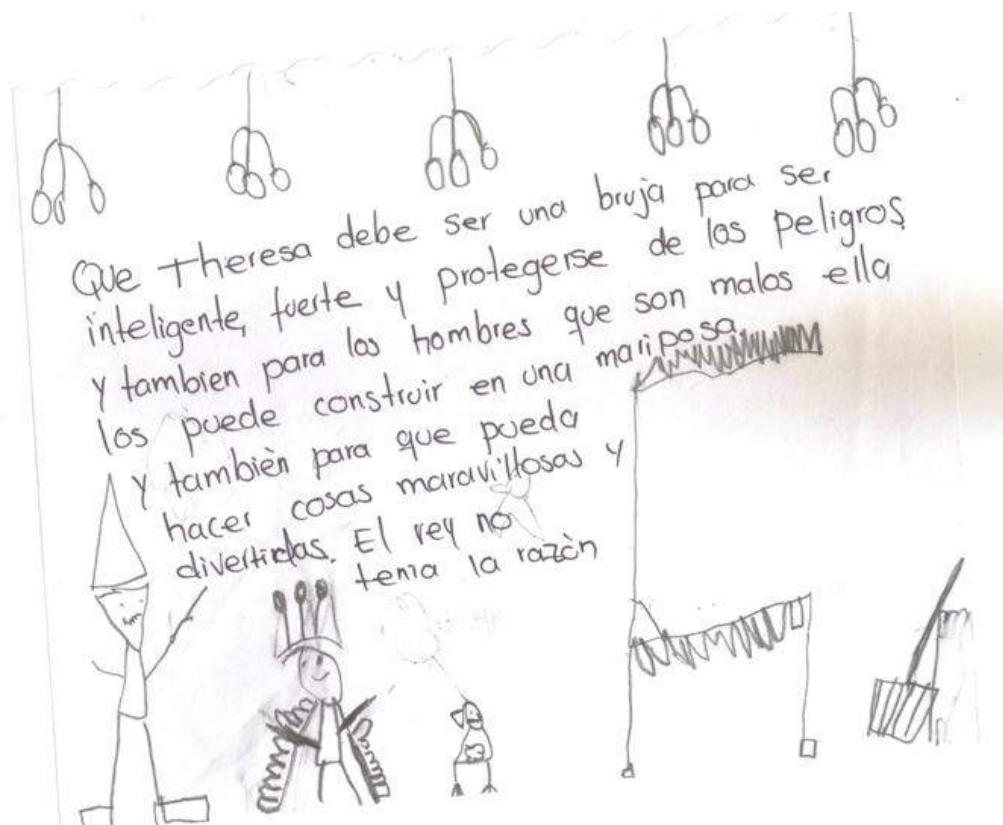 Que theresa debe ser una bruja para ser
inteligente, fuerte y protegerse de los peligros
y tambien para los hombres que son malos ella
los puede construir en una mariposa
y tambièn para que pueda
hacer cosas maravillosas y
divertidas. El rey no
tenia la razòn